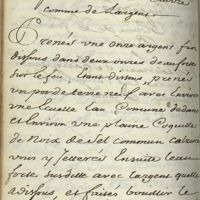 comme de Largent
Prenés une onze argent fin
disous dans deux onces deau forte
sur le feu, Etant disous, prenés
un pot de terre neuf avec Environ
une Ecuelle Eau Comune dedans
et Environ une plaine Coquille
de Noix de sel commun
vous y Jetterés Ensuite leau
forte susditte avec largent quelle
a disous, et faites bouillir le